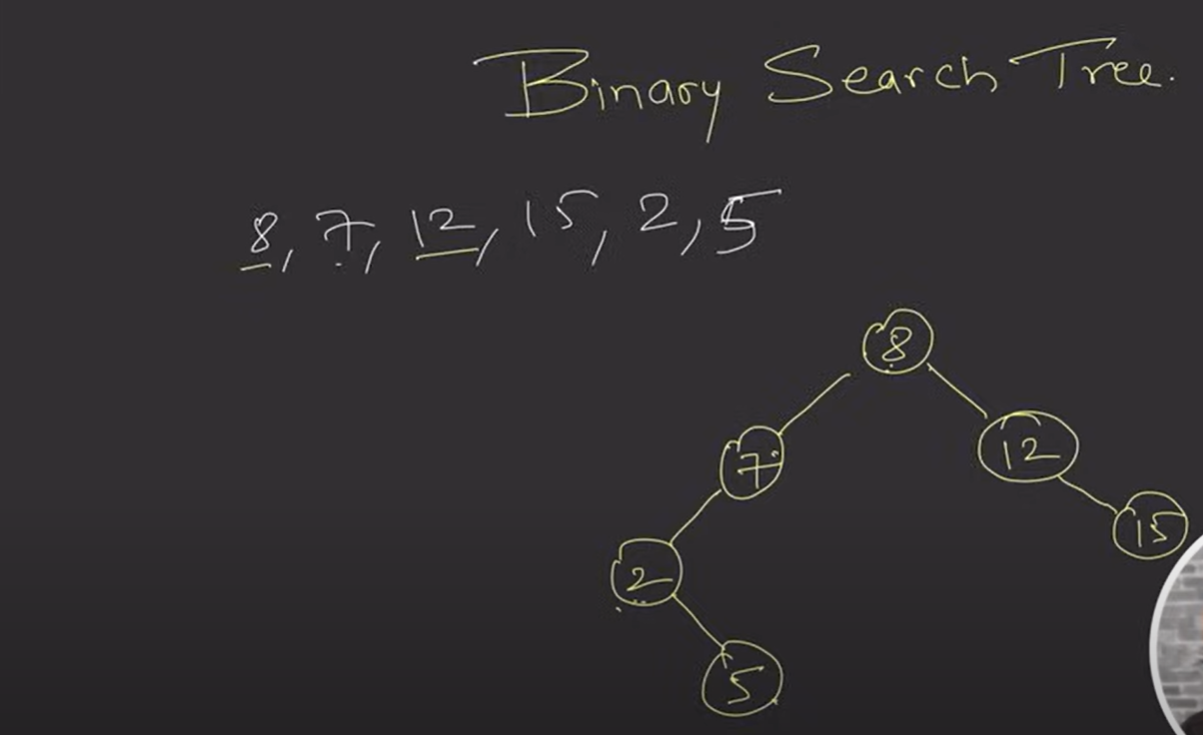 Binary Search Tree.
8, 7, 12, 15, 2, 5
8
7
12
15
2
5